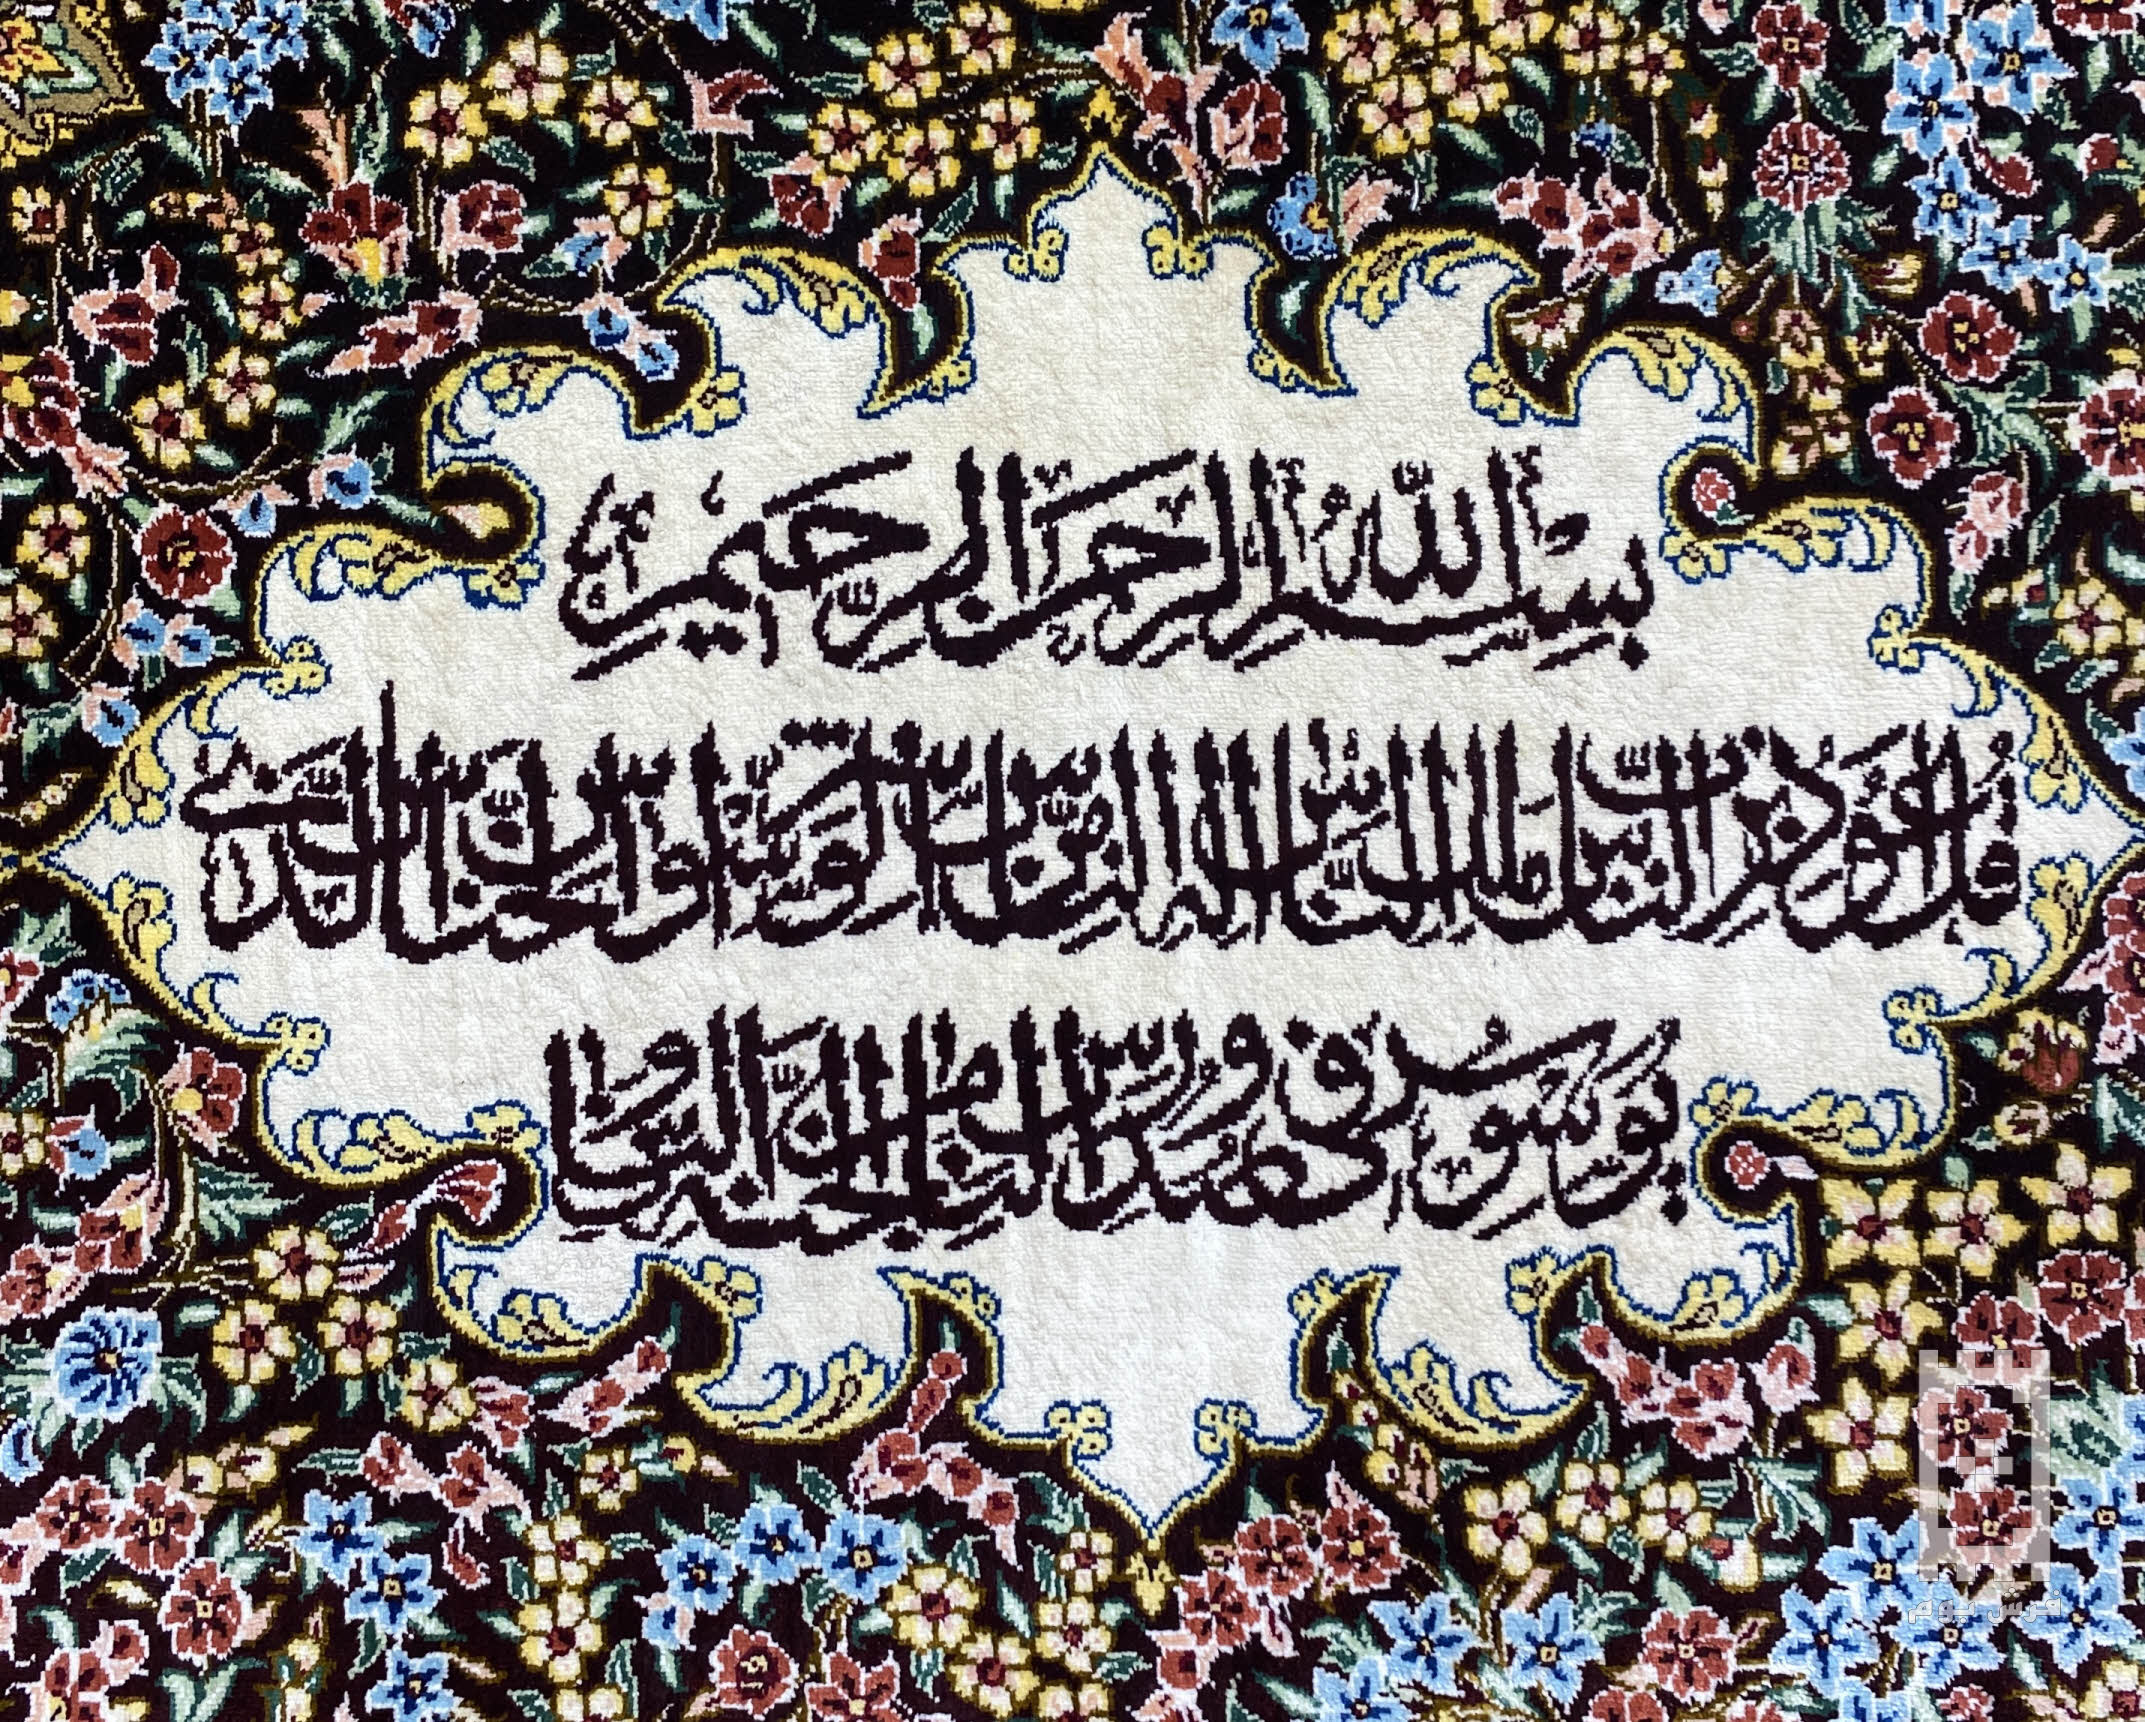 بسم الله الرحمن الرحیم
قل اعوذ برب الناس ملک الناس اله الناس من شر الوسواس الخناس الذی
یوسوس فی صدور الناس من الجنة والناس
فرش بوم